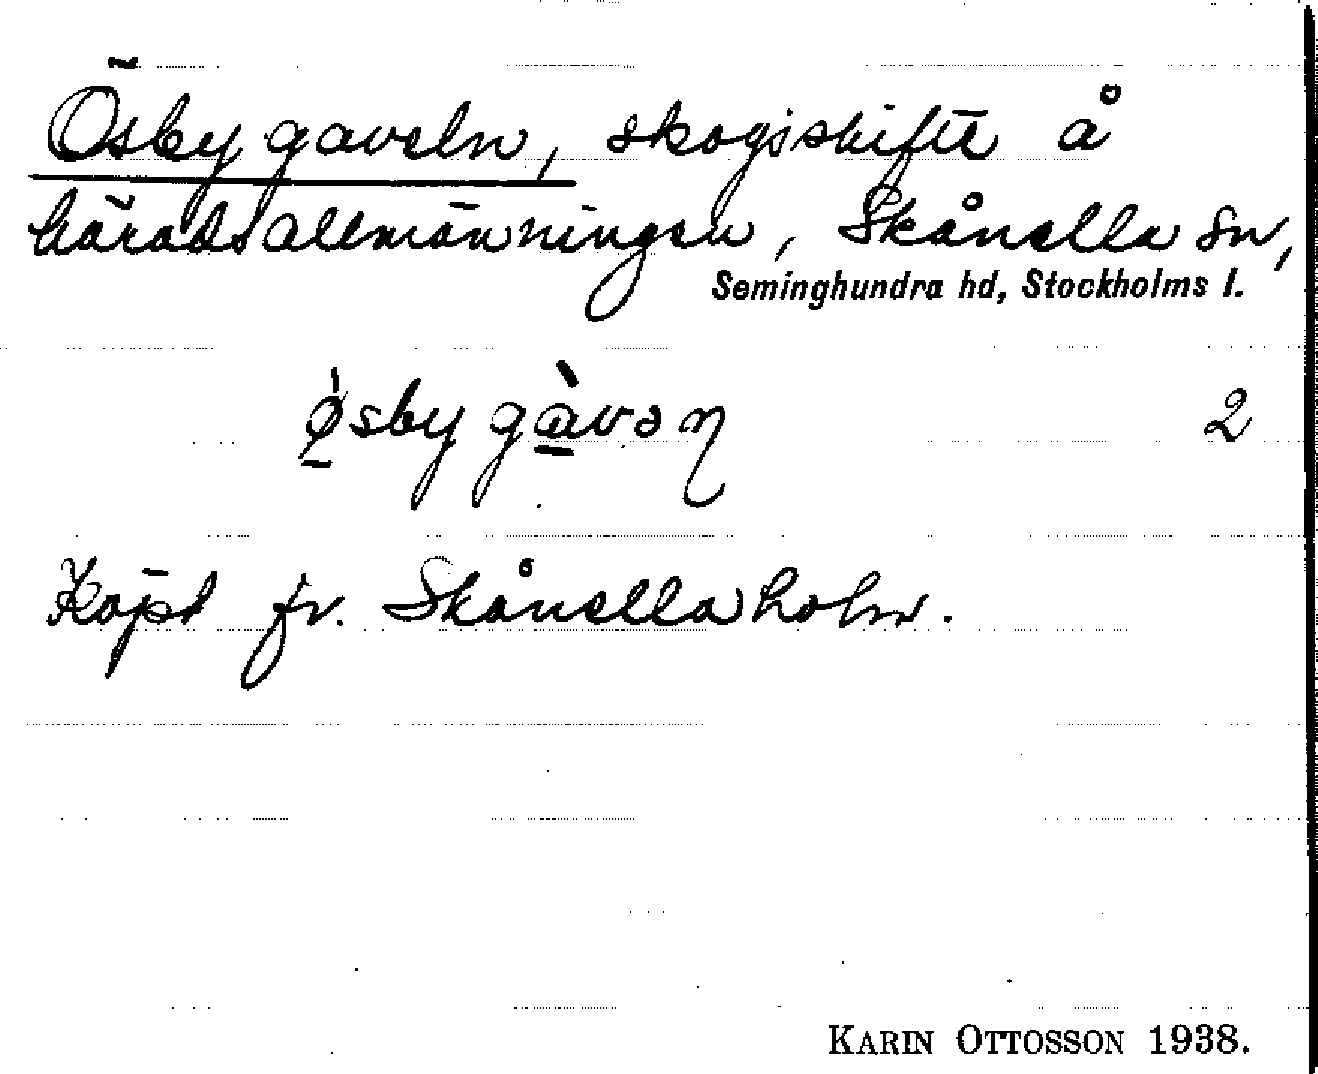 Ösby gaveln, skogsskifte å
häradsallmänningen, Skånella sn,
Seminghundra hd, Stockholms l.
ø̀sby gàvəɳ 2
Köpt fr. Skånellaholm.
KARIN OTTOSSON 1938.